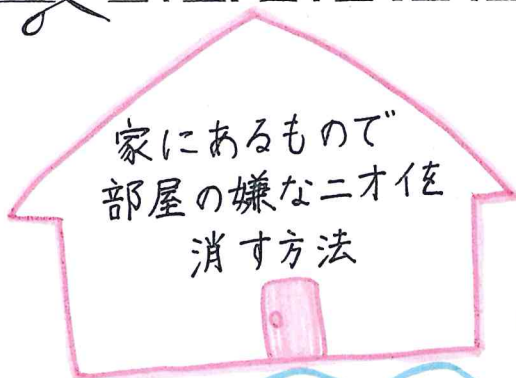 家にあるもので
部屋の嫌なニオイを
消す方法